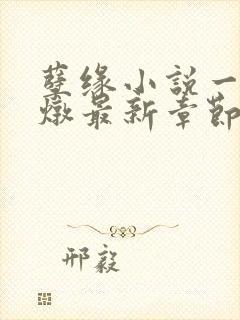 孽缘小说一
燉最新章節
邢毅